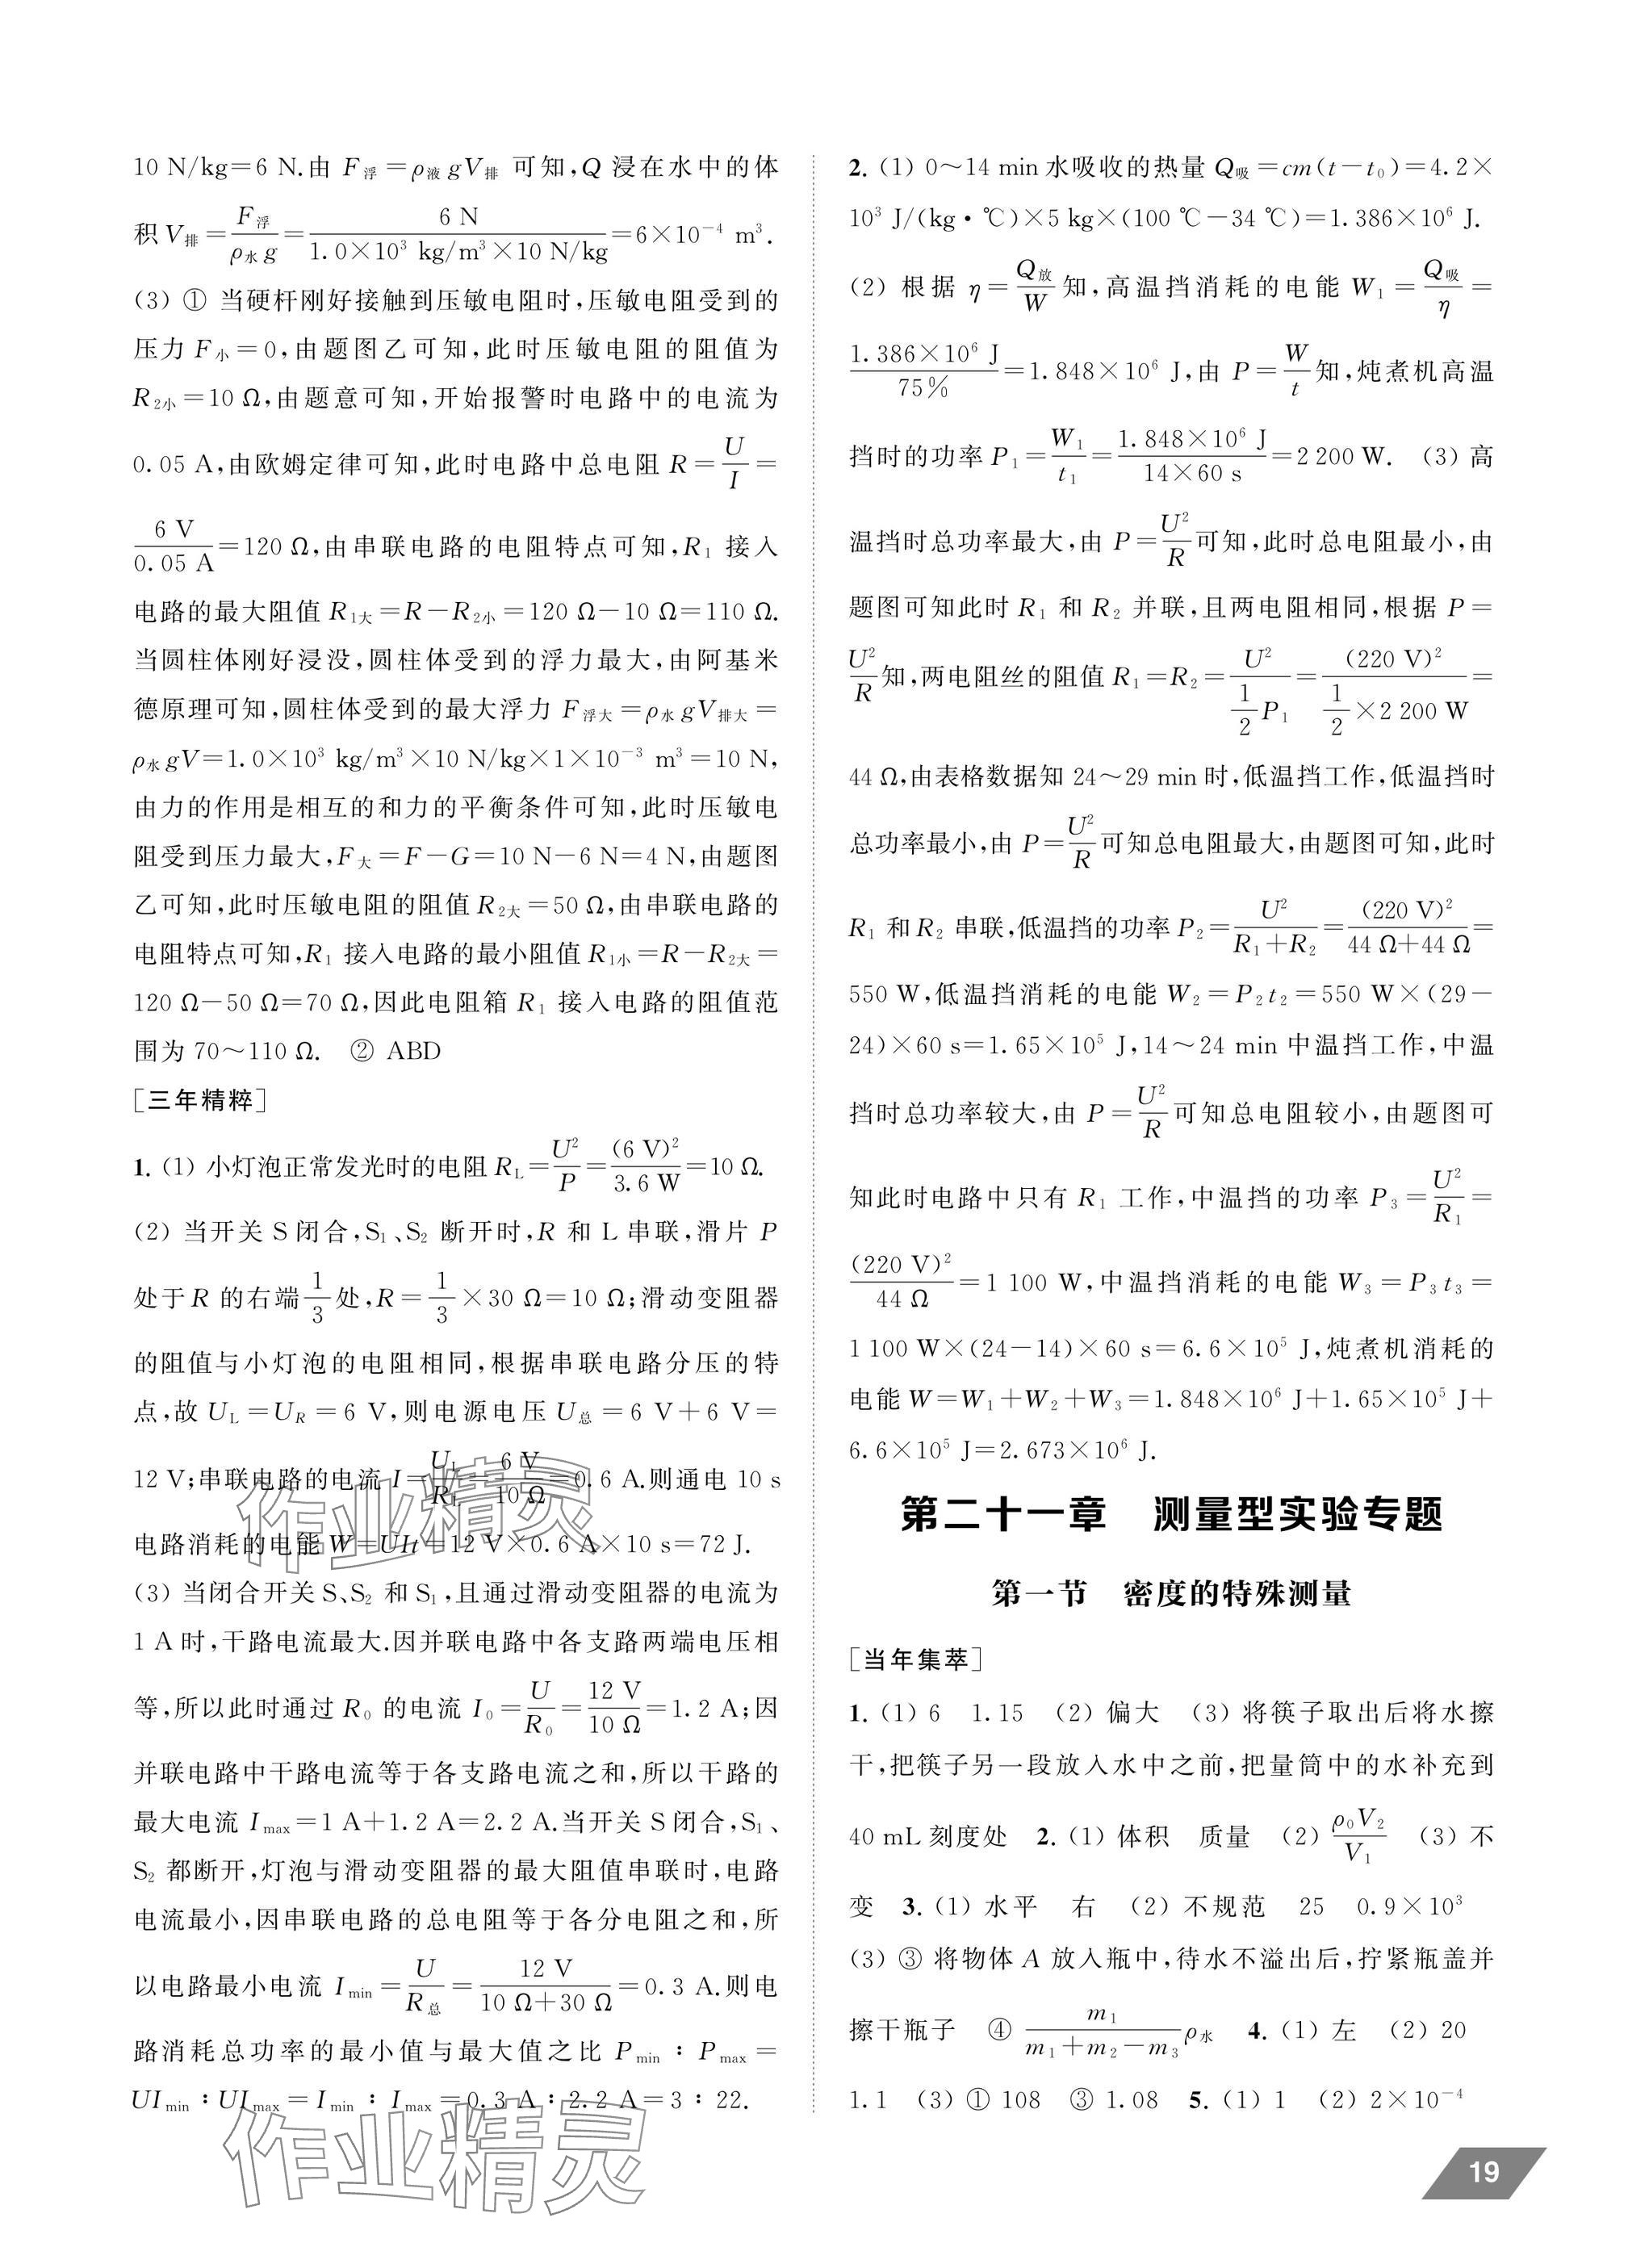 10 N/kg=6 N.由 F浮=ρ液gV排 可知,Q 浸在水中的体
积 V排=F浮/(ρ水g)=6 N/(1.0×10³ kg/m³×10 N/kg)=6×10⁻⁴ m³.
(3) ① 当硬杆刚好接触到压敏电阻时,压敏电阻受到的
压力 F小=0,由题图乙可知,此时压敏电阻的阻值为
R₂小=10 Ω,由题意可知,开始报警时电路中的电流为
0.05 A,由欧姆定律可知,此时电路中总电阻 R=U/I=
6 V/0.05 A=120 Ω,由串联电路的电阻特点可知,R₁ 接入
电路的最大阻值 R₁大=R-R₂小=120 Ω-10 Ω=110 Ω.
当圆柱体刚好浸没,圆柱体受到的浮力最大,由阿基米
德原理可知,圆柱体受到的最大浮力 F浮大=ρ水gV排大=
ρ水gV=1.0×10³ kg/m³×10 N/kg×1×10⁻³ m³=10 N,
由力的作用是相互的和力的平衡条件可知,此时压敏电
阻受到压力最大,F大=F-G=10 N-6 N=4 N,由题图
乙可知,此时压敏电阻的阻值 R₂大=50 Ω,由串联电路的
电阻特点可知,R₁ 接入电路的最小阻值 R₁小=R-R₂大=
120 Ω-50 Ω=70 Ω,因此电阻箱 R₁ 接入电路的阻值范
围为 70~110 Ω. ② ABD
[三年精粹]
1. (1) 小灯泡正常发光时的电阻 R_L=U²/P=(6 V)²/3.6 W=10 Ω.
(2) 当开关 S 闭合,S₁、S₂ 断开时,R 和 L 串联,滑片 P
处于 R 的右端1/3处,R=1/3×30 Ω=10 Ω;滑动变阻器
的阻值与小灯泡的电阻相同,根据串联电路分压的特
点,故 U_L=U_R=6 V,则电源电压 U总=6 V+6 V=
12 V;串联电路的电流 I=U_L/R_L=6 V/10 Ω=0.6 A.则通电 10 s
电路消耗的电能 W=UIt=12 V×0.6 A×10 s=72 J.
(3) 当闭合开关 S、S₂ 和 S₁,且通过滑动变阻器的电流为
1 A 时,干路电流最大.因并联电路中各支路两端电压相
等,所以此时通过 R₀ 的电流 I₀=U/R₀=12 V/10 Ω=1.2 A;因
并联电路中干路电流等于各支路电流之和,所以干路的
最大电流 I_max=1 A+1.2 A=2.2 A.当开关 S 闭合,S₁、
S₂ 都断开,灯泡与滑动变阻器的最大阻值串联时,电路
电流最小,因串联电路的总电阻等于各分电阻之和,所
以电路最小电流 I_min=U/R总=12 V/(10 Ω+30 Ω)=0.3 A.则电
路消耗总功率的最小值与最大值之比 P_min∶P_max=
UI_min∶UI_max=I_min∶I_max=0.3 A∶2.2 A=3∶22.
2. (1) 0~14 min 水吸收的热量 Q吸=cm(t-t₀)=4.2×
10³ J/(kg·℃)×5 kg×(100 ℃-34 ℃)=1.386×10⁶ J.
(2) 根据 η=Q放/W知,高温挡消耗的电能 W₁=Q吸/η=
1.386×10⁶ J/75%=1.848×10⁶ J,由 P=W/t知,炖煮机高温
挡时的功率 P₁=W₁/t₁=1.848×10⁶ J/(14×60 s)=2 200 W. (3) 高
温挡时总功率最大,由 P=U²/R可知,此时总电阻最小,由
题图可知此时 R₁ 和 R₂ 并联,且两电阻相同,根据 P=
U²/R知,两电阻丝的阻值 R₁=R₂=U²/(1/2 P₁)=(220 V)²/(1/2×2 200 W)=
44 Ω,由表格数据知 24~29 min 时,低温挡工作,低温挡时
总功率最小,由 P=U²/R可知总电阻最大,由题图可知,此时
R₁ 和 R₂ 串联,低温挡的功率 P₂=U²/(R₁+R₂)=(220 V)²/(44 Ω+44 Ω)=
550 W,低温挡消耗的电能 W₂=P₂t₂=550 W×(29-
24)×60 s=1.65×10⁵ J,14~24 min 中温挡工作,中温
挡时总功率较大,由 P=U²/R可知总电阻较小,由题图可
知此时电路中只有 R₁ 工作,中温挡的功率 P₃=U²/R₁=
(220 V)²/44 Ω=1 100 W,中温挡消耗的电能 W₃=P₃t₃=
1 100 W×(24-14)×60 s=6.6×10⁵ J,炖煮机消耗的
电能 W=W₁+W₂+W₃=1.848×10⁶ J+1.65×10⁵ J+
6.6×10⁵ J=2.673×10⁶ J.
第二十一章 测量型实验专题
第一节 密度的特殊测量
[当年集萃]
1. (1) 6 1.15 (2) 偏大 (3) 将筷子取出后将水擦
干,把筷子另一段放入水中之前,把量筒中的水补充到
40 mL 刻度处 2. (1) 体积 质量 (2) ρ₀V₂/V₁ (3) 不
变 3. (1) 水平 右 (2) 不规范 25 0.9×10³
(3) ③ 将物体 A 放入瓶中,待水不溢出后,拧紧瓶盖并
擦干瓶子 ④ m₁/(m₁+m₂-m₃)ρ水 4. (1) 左 (2) 20
1.1 (3) ① 108 ③ 1.08 5. (1) 1 (2) 2×10⁻⁴
作业精灵
作业精灵
19